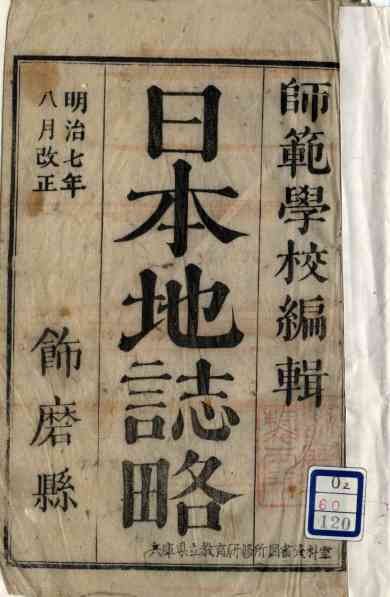 師範學校編輯
日本地誌略
明治七年
八月改正
飾磨縣
兵庫県立教育研修所図書資料室
02
60
120